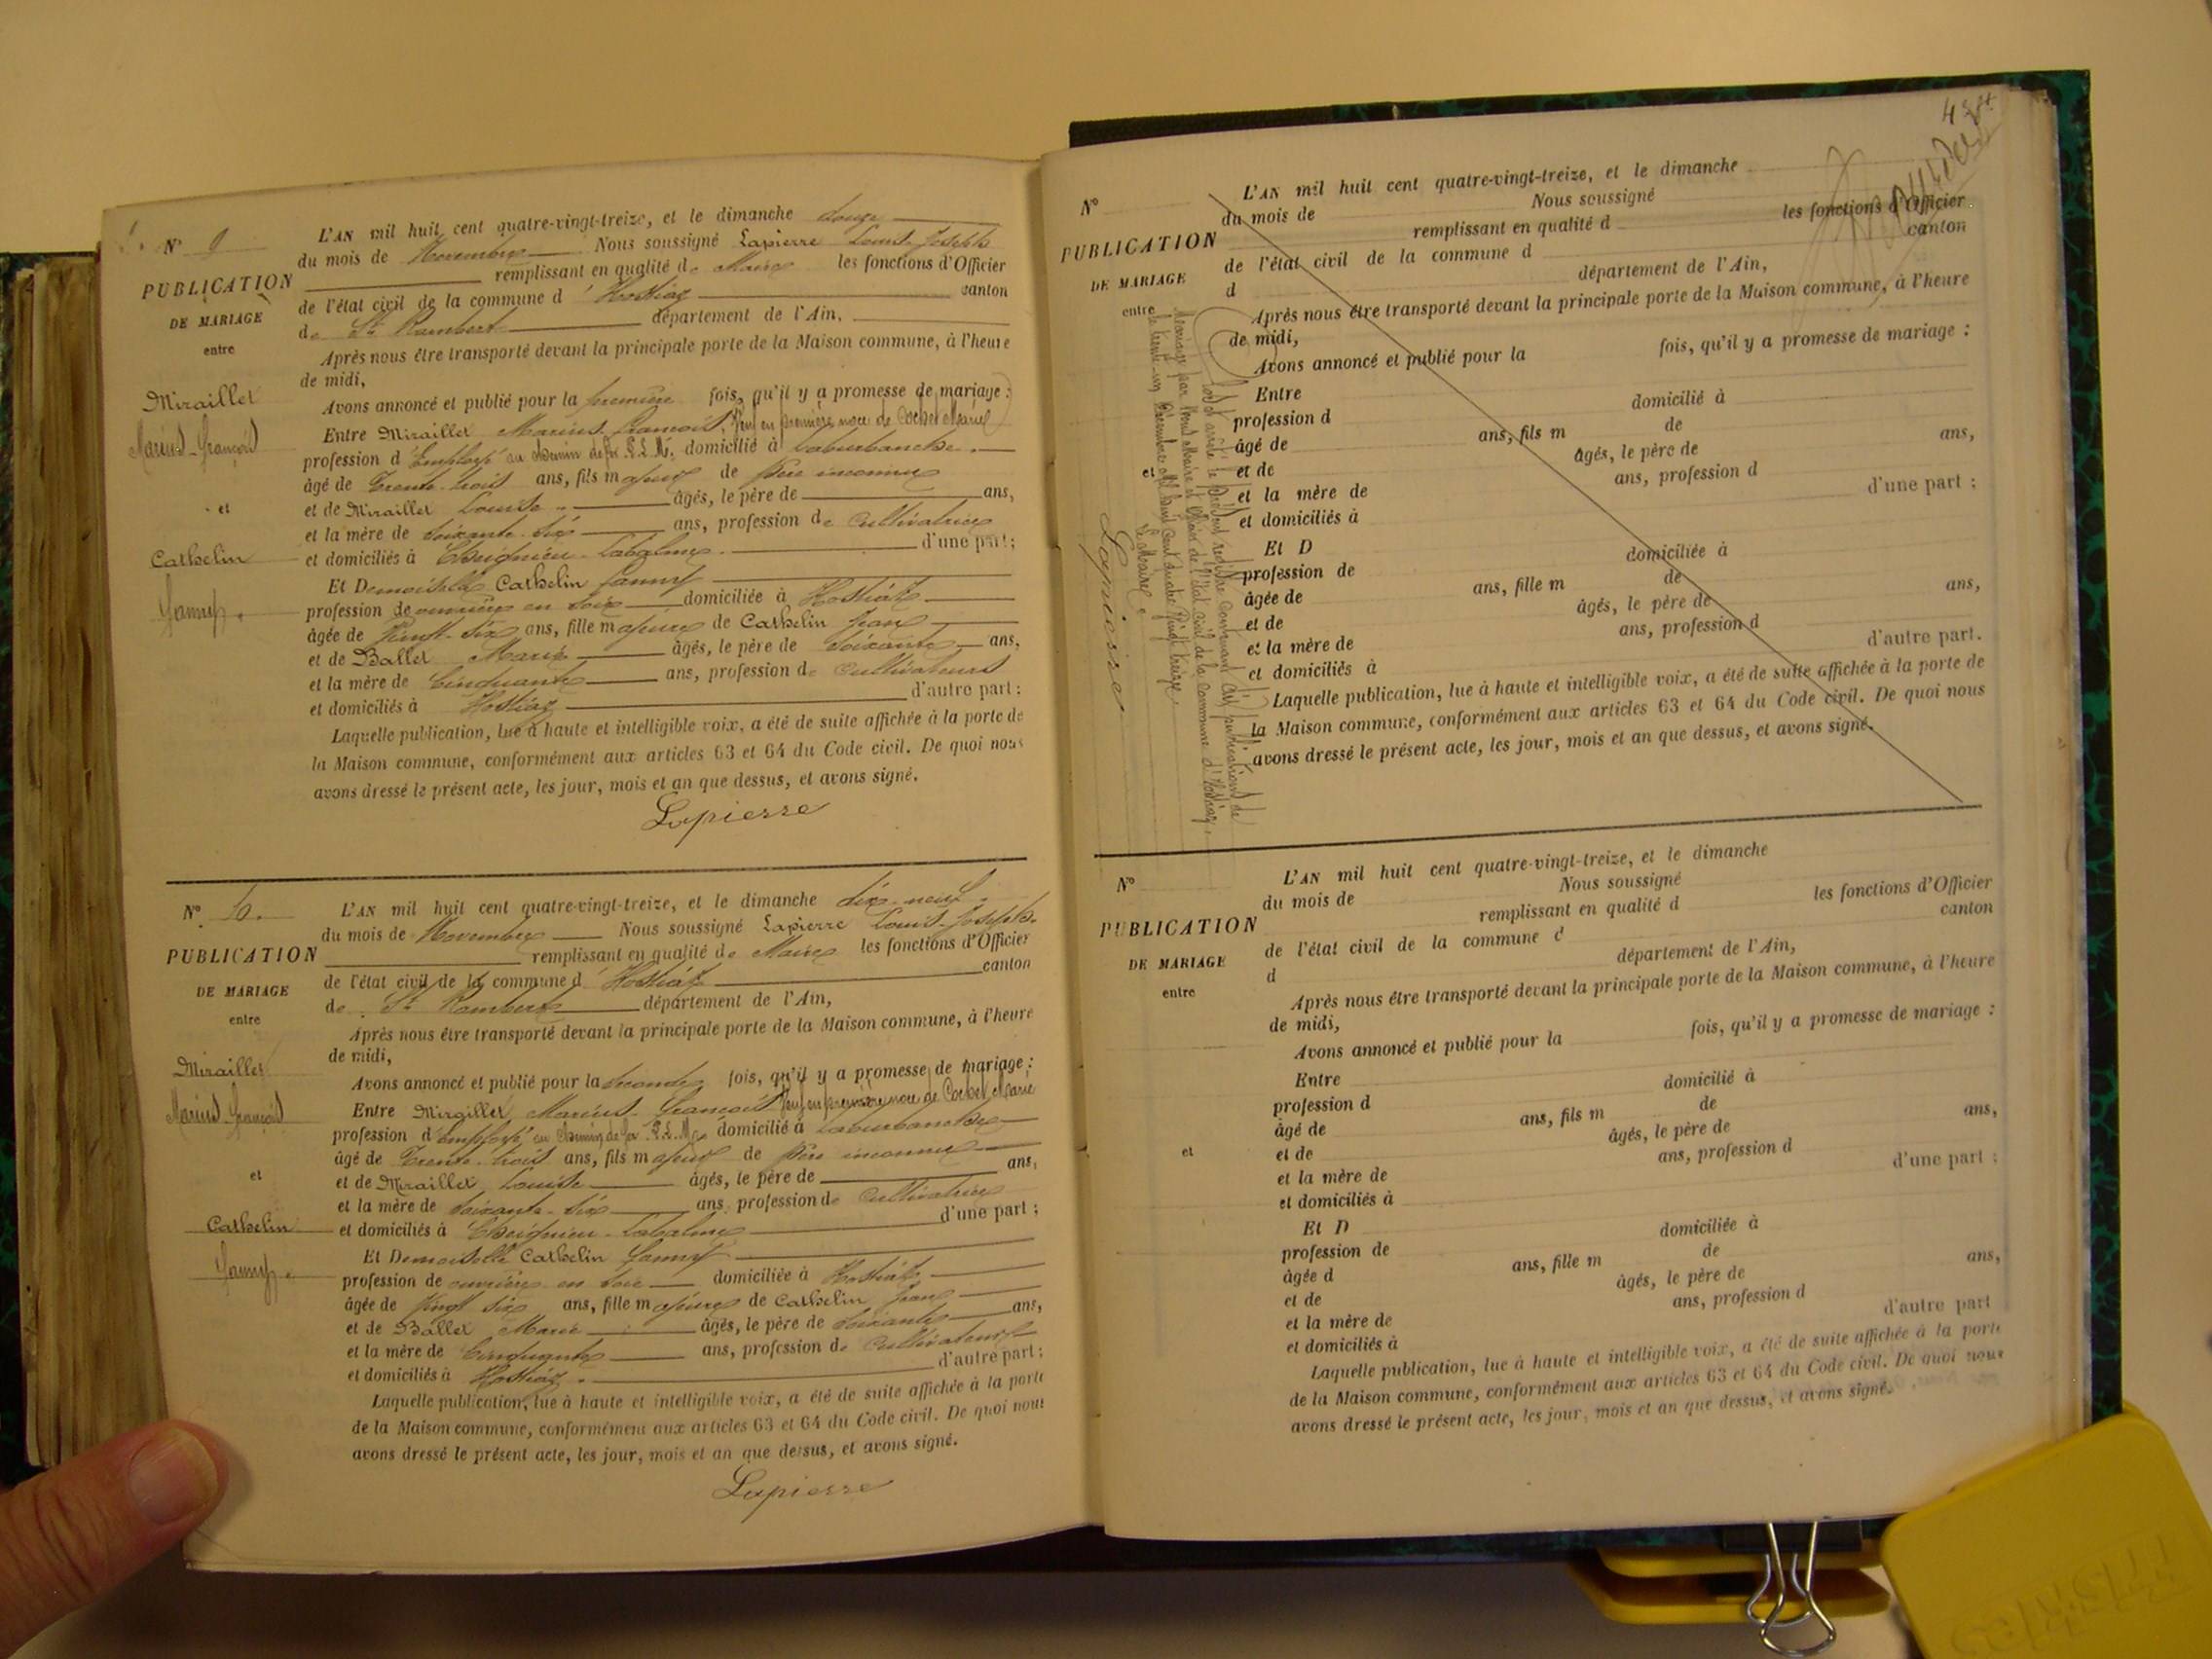 N° 9
PUBLICATION
DE MARIAGE
entre
Miraillet
Marius-François
et
Cathelin
Fanny.
L'AN mil huit cent quatre-vingt-treize, et le dimanche douze
du mois de Novembre Nous soussigné Lapierre Louis-Joseph
remplissant en qualité de Maire les fonctions d'Officier
de l'état civil de la commune d'Hostiaz canton
de St Rambert département de l'Ain,
Après nous être transporté devant la principale porte de la Maison commune, à l'heure
de midi,
Avons annoncé et publié pour la première fois, qu'il y a promesse de mariage :
Entre Miraillet Marius François, Veuf en première noce de Cochet Marie
profession d'Employé au chemin de fer P. L. M. domicilié à Laburbanche.
âgé de Trente-trois ans, fils majeur de Père inconnu
et de Miraillet Louise âgés, le père de ans,
et la mère de soixante-six ans, profession de Cultivatrice
et domiciliés à Cheignieu-Labalme. d'une part;
Et Demoiselle Cathelin Fanny
profession de ouvrière en soie domiciliée à Hostiaz
âgée de Vingt-six ans, fille majeure de Cathelin Jean
et de Ballet Marie âgés, le père de soixante ans,
et la mère de Cinquante ans, profession de Cultivateurs
et domiciliés à Hostiaz d'autre part;
Laquelle publication, lue à haute et intelligible voix, a été de suite affichée à la porte de
la Maison commune, conformément aux articles 63 et 64 du Code civil. De quoi nous
avons dressé le présent acte, les jour, mois et an que dessus, et avons signé.
Lapierre
N° 10.
PUBLICATION
DE MARIAGE
entre
Miraillet
Marius-François
et
Cathelin
Fanny.
L'AN mil huit cent quatre-vingt-treize, et le dimanche dix-neuf
du mois de Novembre Nous soussigné Lapierre Louis-Joseph
remplissant en qualité de Maire les fonctions d'Officier
de l'état civil de la commune d'Hostiaz canton
de St Rambert département de l'Ain,
Après nous être transporté devant la principale porte de la Maison commune, à l'heure
de midi,
Avons annoncé et publié pour la seconde fois, qu'il y a promesse de mariage :
Entre Miraillet Marius-François Veuf en première noce de Cochet Marie
profession d'Employé au chemin de fer P. L. M. domicilié à Laburbanche
âgé de Trente-trois ans, fils majeur de Père inconnu
et de Miraillet Louise âgés, le père de ans,
et la mère de soixante-six ans, profession de Cultivatrice
et domiciliés à Cheignieu-Labalme d'une part;
Et Demoiselle Cathelin Fanny
profession de ouvrière en soie domiciliée à Hostiaz
âgée de Vingt six ans, fille majeure de Cathelin Jean
et de Ballet Marie âgés, le père de soixante ans,
et la mère de Cinquante ans, profession de Cultivateurs
et domiciliés à Hostiaz. d'autre part;
Laquelle publication, lue à haute et intelligible voix, a été de suite affichée à la porte
de la Maison commune, conformément aux articles 63 et 64 du Code civil. De quoi nous
avons dressé le présent acte, les jour, mois et an que dessus, et avons signé.
Lapierre
N°
PUBLICATION
DE MARIAGE
entre
et
L'AN mil huit cent quatre-vingt-treize, et le dimanche
du mois de Nous soussigné
remplissant en qualité d les fonctions d'Officier
de l'état civil de la commune d canton
d département de l'Ain,
Après nous être transporté devant la principale porte de la Maison commune, à l'heure
de midi,
Avons annoncé et publié pour la fois, qu'il y a promesse de mariage :
Entre domicilié à
profession d
âgé de ans, fils m de
et de âgés, le père de ans,
et la mère de ans, profession d
et domiciliés à d'une part;
Et D domiciliée à
profession de
âgée de ans, fille m de
et de âgés, le père de ans,
et la mère de ans, profession d
et domiciliés à d'autre part.
Laquelle publication, lue à haute et intelligible voix, a été de suite affichée à la porte de
la Maison commune, conformément aux articles 63 et 64 du Code civil. De quoi nous
avons dressé le présent acte, les jour, mois et an que dessus, et avons signé.
Clos et arrêté le présent registre contenant dix publications de
Mariage par Nous Maire et Officier de l'état civil de la commune d'Hostiaz,
le trente-un Décembre mil huit cent quatre Vingt treize.
Le Maire,
Lapierre
N°
PUBLICATION
DE MARIAGE
entre
et
L'AN mil huit cent quatre-vingt-treize, et le dimanche
du mois de Nous soussigné
remplissant en qualité d les fonctions d'Officier
de l'état civil de la commune d canton
d département de l'Ain,
Après nous être transporté devant la principale porte de la Maison commune, à l'heure
de midi,
Avons annoncé et publié pour la fois, qu'il y a promesse de mariage :
Entre domicilié à
profession d
âgé de ans, fils m de
et de âgés, le père de ans,
et la mère de ans, profession d
et domiciliés à d'une part;
Et D domiciliée à
profession de
âgée d ans, fille m de
et de âgés, le père de ans,
et la mère de ans, profession d
et domiciliés à d'autre part
Laquelle publication, lue à haute et intelligible voix, a été de suite affichée à la porte
de la Maison commune, conformément aux articles 63 et 64 du Code civil. De quoi nous
avons dressé le présent acte, les jour, mois et an que dessus, et avons signé.